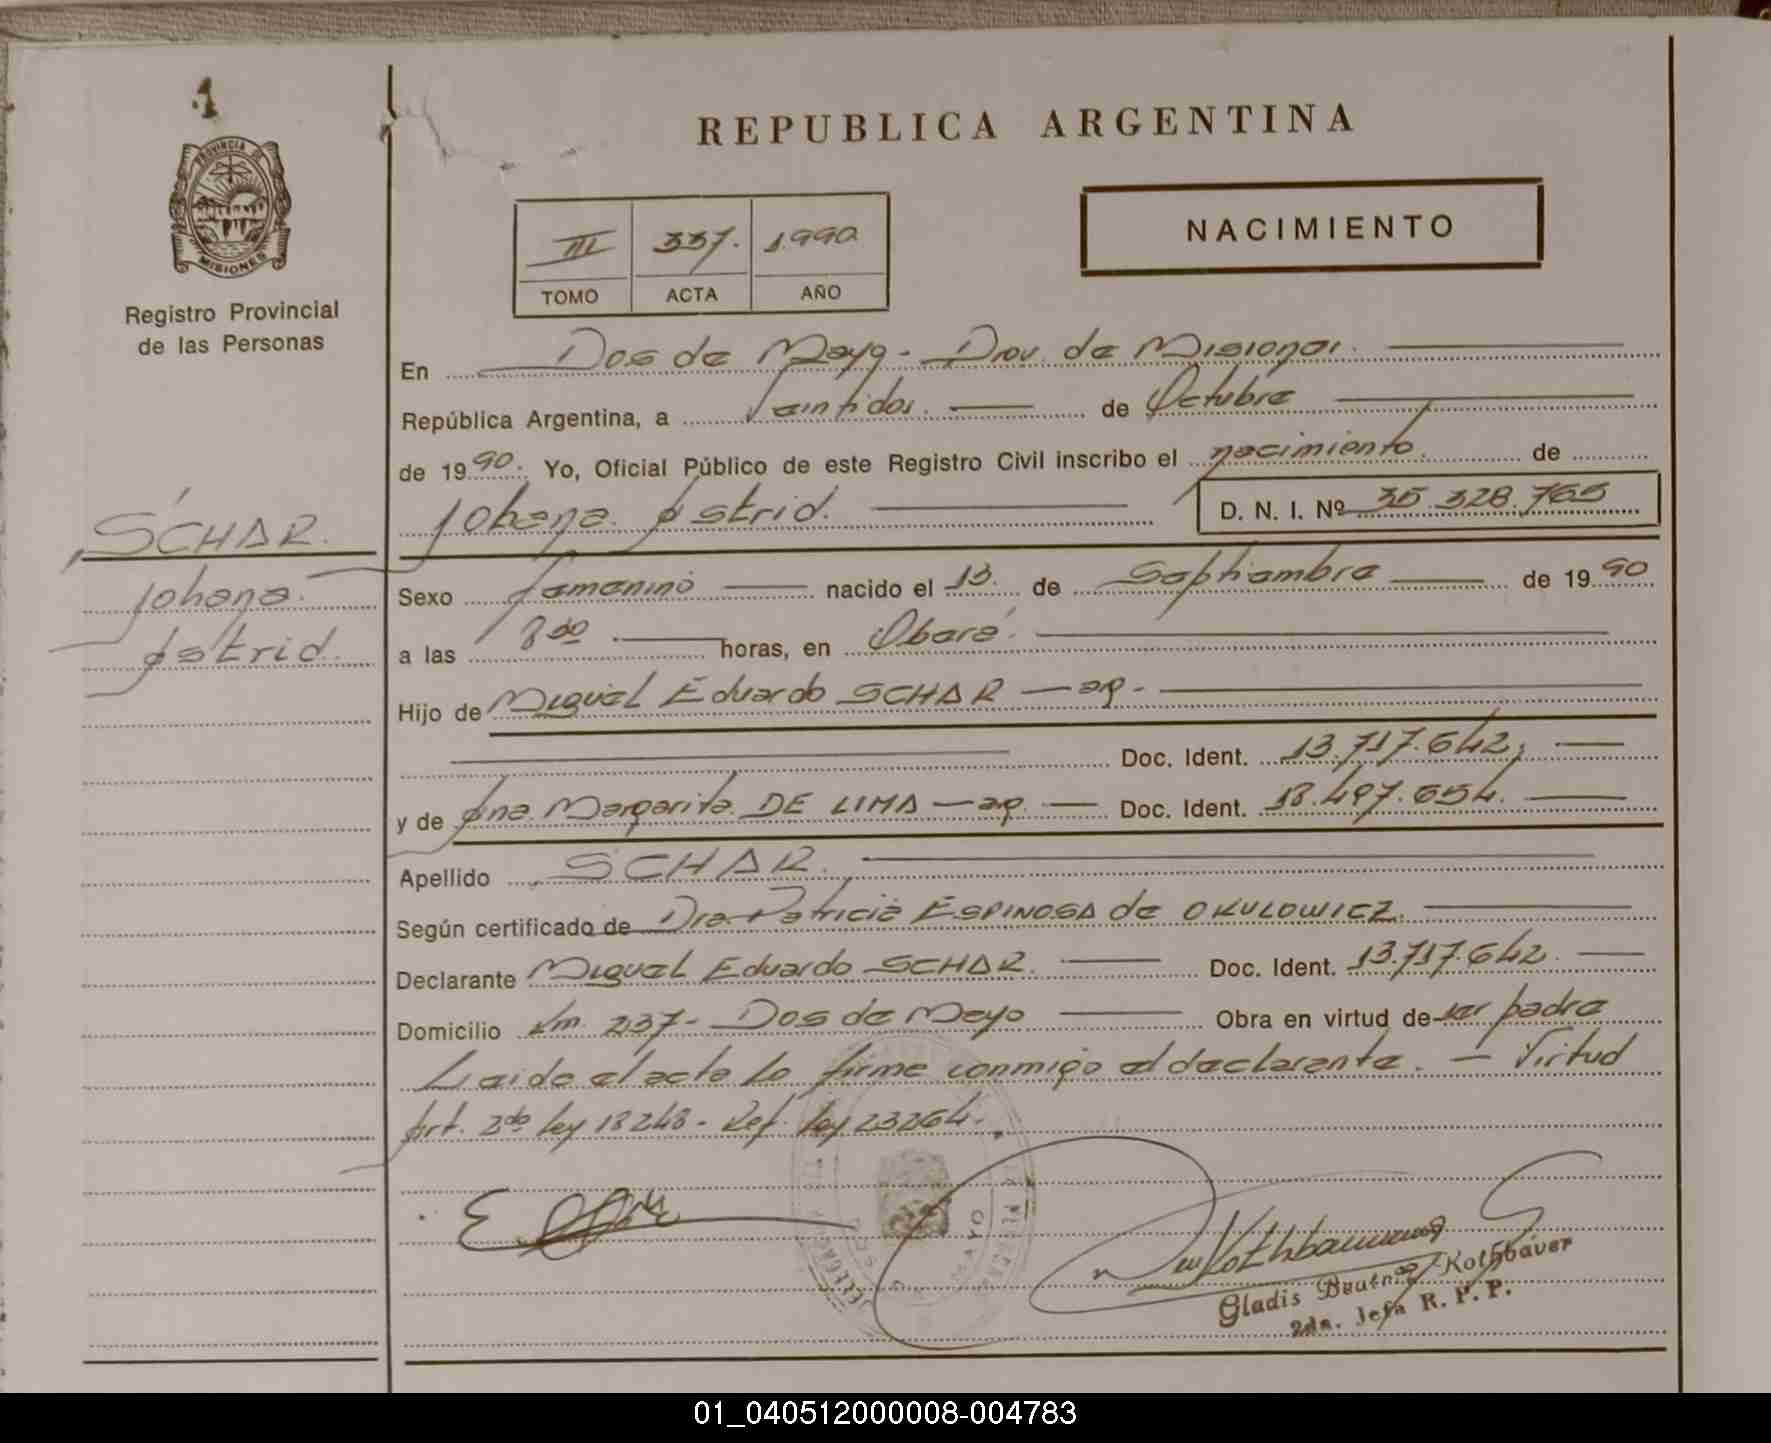 1
PROVINCIA DE
MISIONES
Registro Provincial
de las Personas
REPUBLICA ARGENTINA
NACIMIENTO
III 337. 1.990
TOMO ACTA AÑO
En Dos de Mayo - Prov. de Misiones.
República Argentina, a Veintidos. de Octubre
de 1990. Yo, Oficial Público de este Registro Civil inscribo el nacimiento. de
Johana Astrid. D. N. I. Nº 35.328.765
SCHAR.
Johana
Astrid.
Sexo femenino nacido el 13. de Septiembre de 1990
a las horas, en Oberá.
Hijo de Miguel Eduardo SCHAR - ar.
Doc. Ident. 13.717.642,
y de Ana Margarita DE LIMA - ar. Doc. Ident. 18.497.654.
Apellido SCHAR.
Según certificado de Dra. Patricia ESPINOSA de OKULOWICZ.
Declarante Miguel Eduardo SCHAR. Doc. Ident. 13.717.642.
Domicilio Km. 237 - Dos de Mayo Obra en virtud de ser padre
Leida el acta lo firma conmigo el declarante. - Virtud
Art. 2do ley 18248 - Ref. ley 23264.
MAYO
Gladis Beatriz Kothbaver
2da. Jefa R. P. P.
01_040512000008-004783